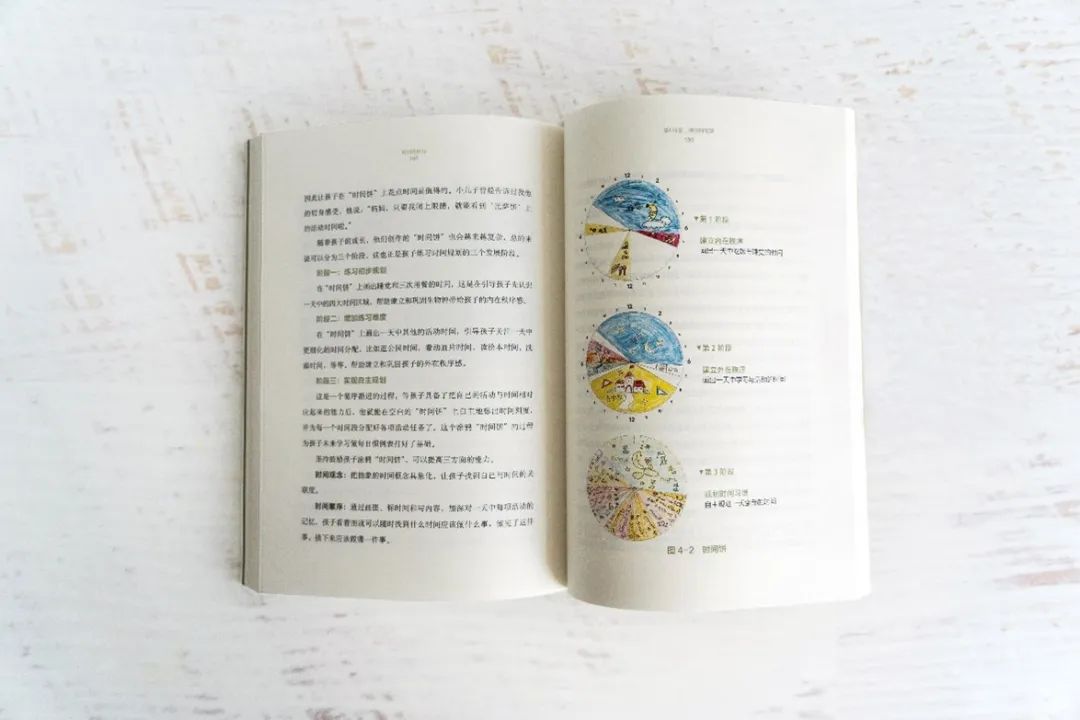 因此让孩子在“时间饼”上花点时间是值得的。小儿子曾经告诉过我他
的切身感受，他说：“妈妈，只要我闭上眼睛，就能看到‘比萨饼’上
的活动时间啦。”
随着孩子的成长，他们创作的“时间饼”也会越来越复杂，总的来
说可以分为三个阶段，这也正是孩子练习时间规划的三个发展阶段。
阶段一：练习初步规划
在“时间饼”上画出睡觉和三次用餐的时间，这是在引导孩子先认识
一天中的四大时间区域，帮助建立和巩固生物钟带给孩子的内在秩序感。
阶段二：增加练习难度
在“时间饼”上画出一天中其他的活动时间，引导孩子关注一天中
更细化的时间分配，比如逛公园时间、看动画片时间、读绘本时间、洗
澡时间，等等。帮助建立和巩固孩子的外在秩序感。
阶段三：实现自主规划
这是一个循序渐进的过程，等孩子具备了把自己的活动与时间相对
应起来的能力后，他就能在空白的“时间饼”上自主地标出时间刻度，
并为每一个时间段分配好各项活动任务了。这个涂鸦“时间饼”的过程
为孩子未来学习做每日惯例表打好了基础。
坚持鼓励孩子涂鸦“时间饼”，可以提高三方面的能力。
时间观念：把抽象的时间概念具象化，让孩子找到自己与时间的关
联度。
时间顺序：通过画图、标时间和写内容，加深对一天中每项活动的
记忆。孩子看着图就可以随时找到什么时间应该做什么事，做完了这件
事，接下来应该做哪一件事。
▼第1阶段
建立内在秩序
画出一天中吃饭与睡觉的时间
▼第2阶段
建立外在秩序
画出一天中学习与活动的时间
▼第3阶段
规划时间习惯
自主规划一天全部的时间
图4-2 时间饼